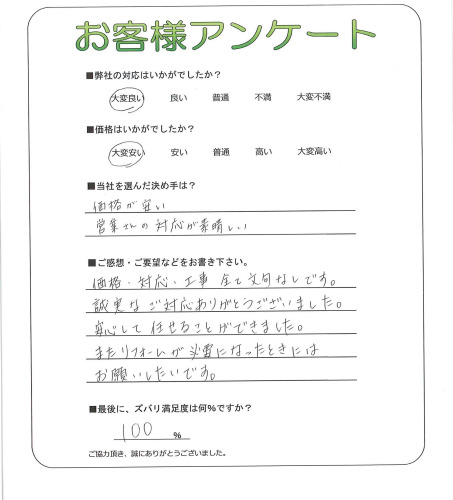 お客様アンケート
■弊社の対応はいかがでしたか？
大変良い 良い 普通 不満 大変不満
■価格はいかがでしたか？
大変安い 安い 普通 高い 大変高い
■当社を選んだ決め手は？
価格が安い
営業さんの対応が素晴しい
■ご感想・ご要望などをお書き下さい。
価格・対応・工事 全て文句なしです。
誠実なご対応ありがとうございました。
安心して任せることができました。
またリフォームが必要になったときには
お願いしたいです。
■最後に、ズバリ満足度は何％ですか？
100 ％
ご協力頂き、誠にありがとうございました。